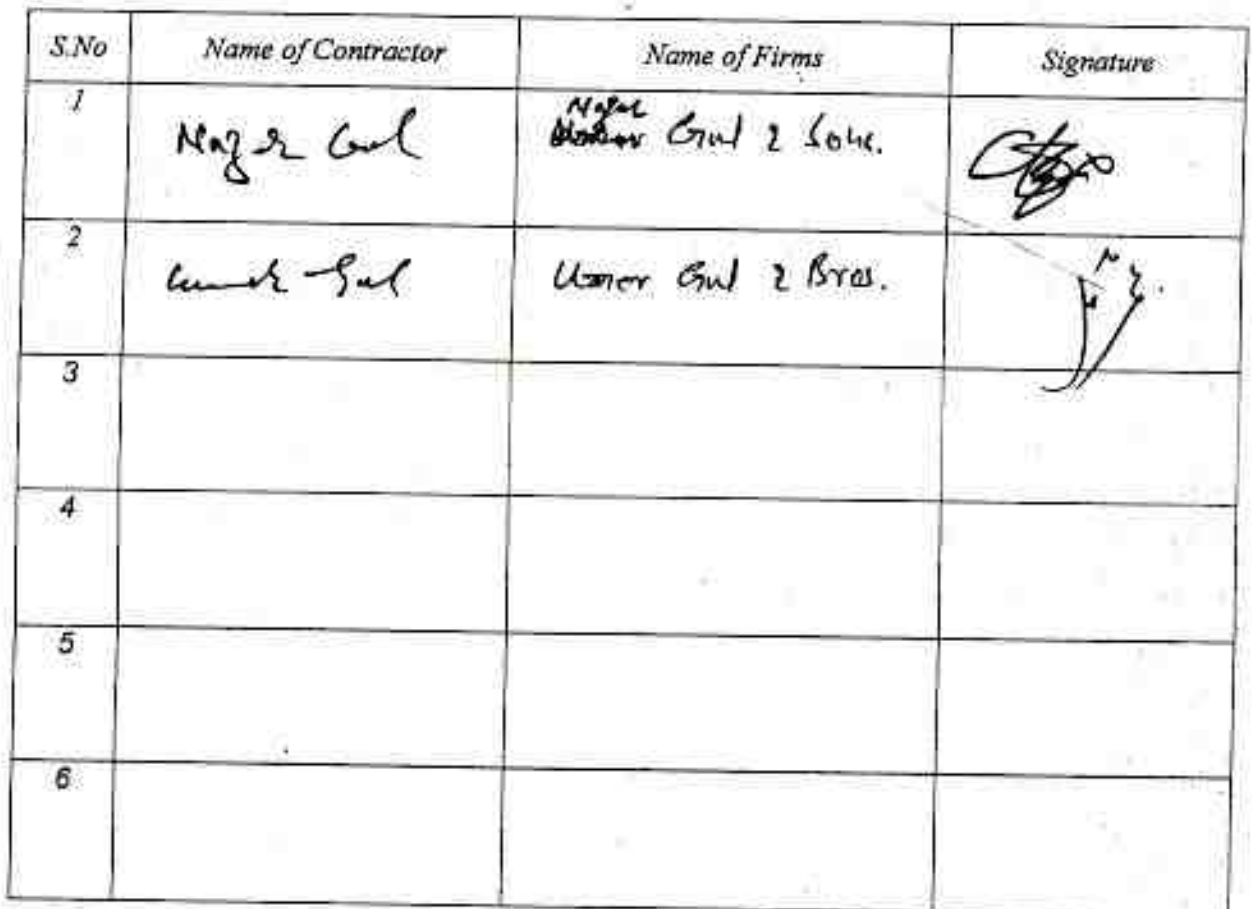 S.No Name of Contractor Name of Firms Signature
1 Nazer Gul Nazer Gul & Sons.
2 Gul Umer Gul & Bros.
3
4
5
6